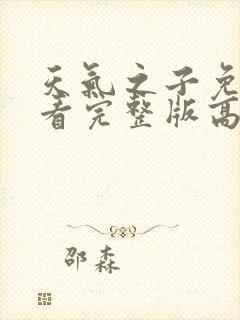 天氣之子免
看完整版高
邵森